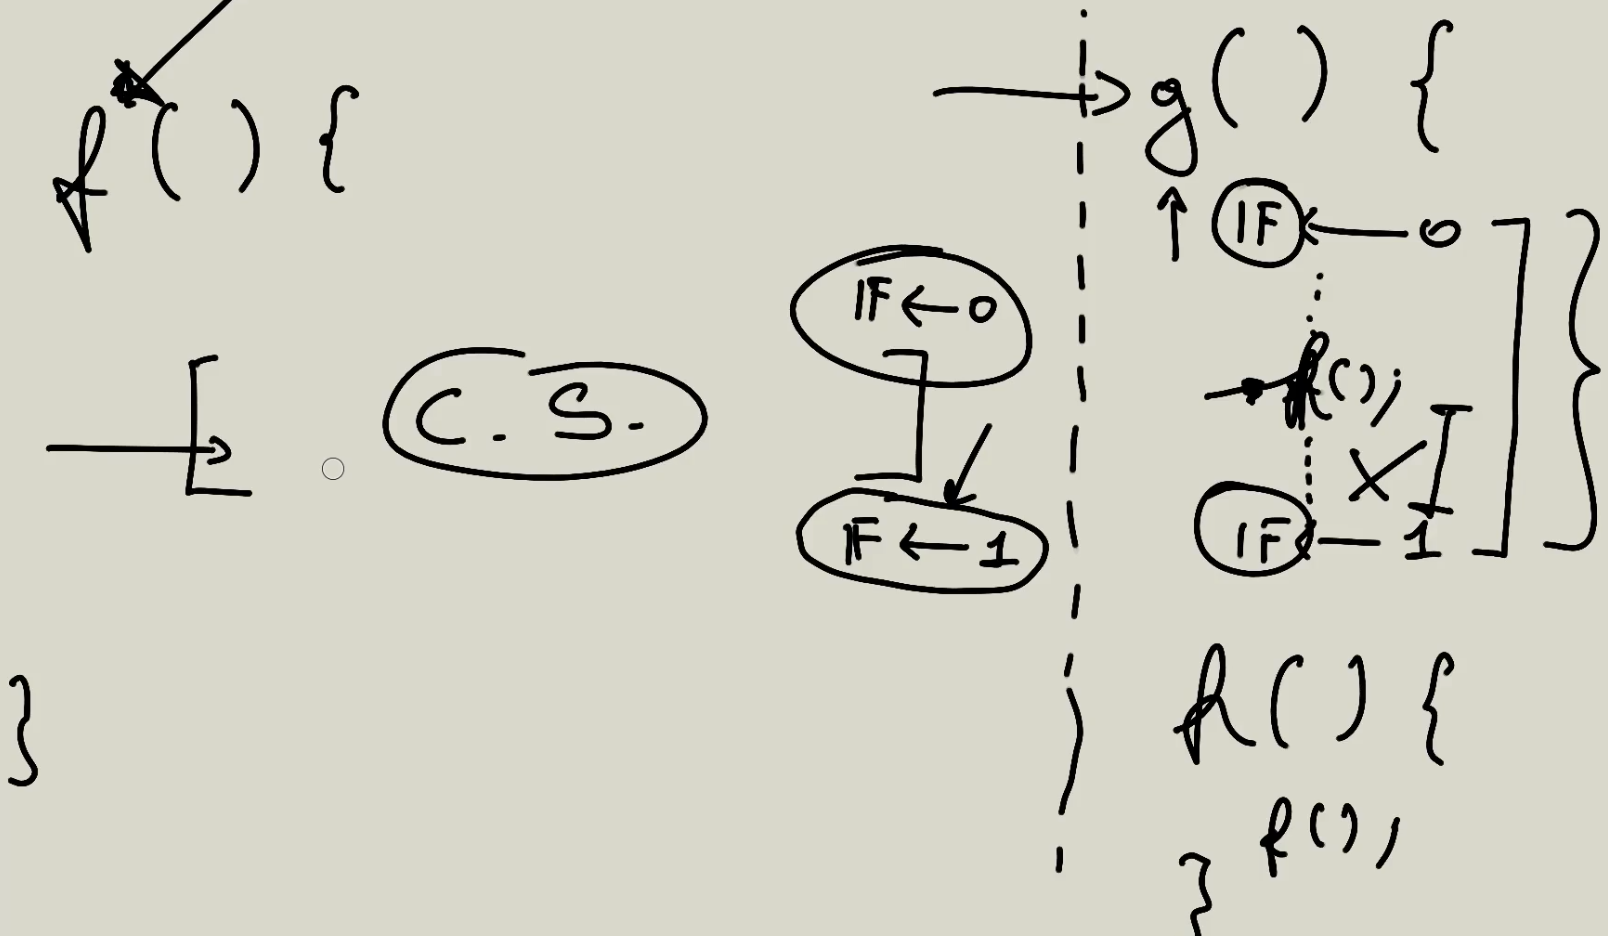 f() {
C.S.
IF ← 0
IF ← 1
}
g() {
IF ← 0
f();
IF ← 1
h() {
f();
}